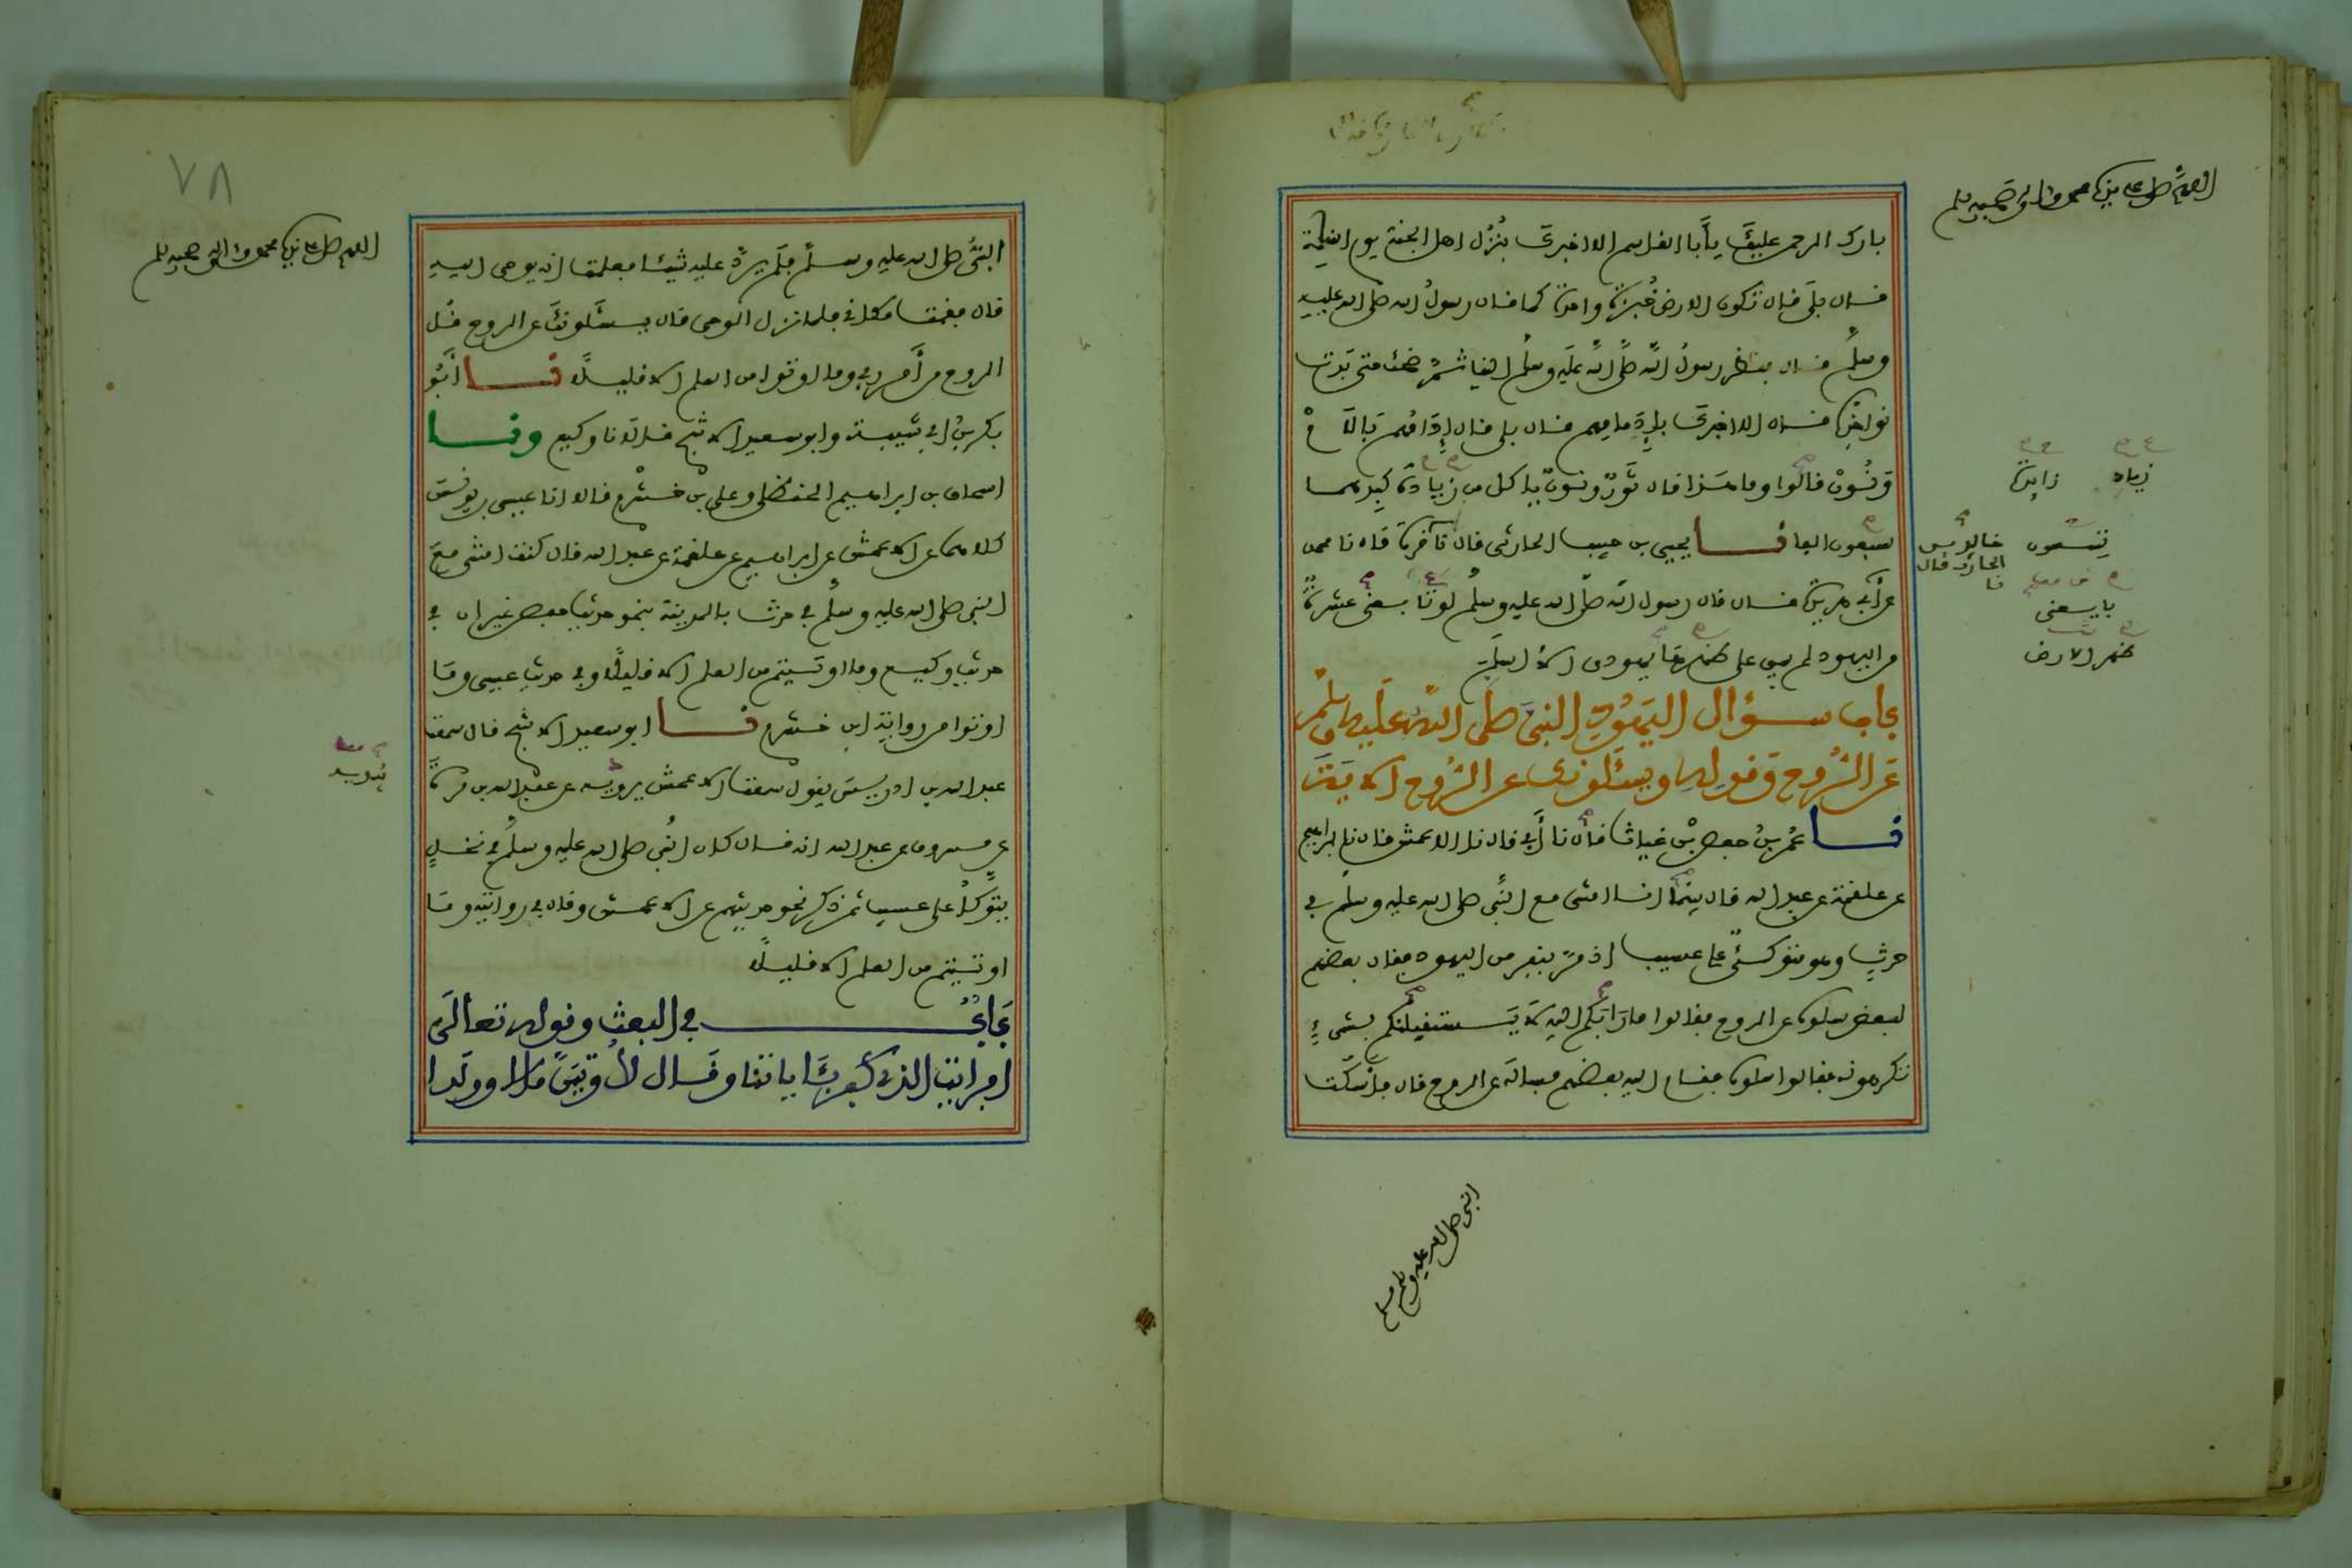 اللهم صل على نبينا محمد وآله وصحبه وسلم
بارك الرحمن عليك يا أبا القاسم ألا أخبرك بنزل أهل الجنة يوم القيامة
قال بلى قال تكون الأرض خبزة واحدة كما قال رسول الله صلى الله عليه
وسلم قال فنظر رسول الله صلى الله عليه وسلم إلينا ثم ضحك حتى بدت
نواجذه قال ألا أخبرك بإدامهم قال بلى قال إدامهم بالام
ونون قالوا وما هذا قال ثور ونون يأكل من زيادة كبدهما
سبعون ألفا نا يحيى بن حبيب الحارثي قال نا قرة قال نا محمد
عن أبي هريرة قال قال رسول الله صلى الله عليه وسلم لو تابعني عشرة
من اليهود لم يبق على ظهرها يهودي إلا أسلم
باب سؤال اليهود النبي صلى الله عليه وسلم
عن الروح وقوله ويسئلونك عن الروح الآية
نا عمر بن حفص بن غياث قال نا أبي قال نا الأعمش قال نا إبراهيم
عن علقمة عن عبد الله قال بينما أنا أمشي مع النبي صلى الله عليه وسلم في
حرث وهو متوكئ على عسيب إذ مر بنفر من اليهود فقال بعضهم
لبعض سلوه عن الروح فقالوا ما رابكم إليه لا يستقبلنكم بشيء
تكرهونه فقالوا سلوه فقام إليه بعضهم فسأله عن الروح قال فأسكت
زياد زائدة
تسعون خالد بن
الحارث قال
نا
بايعني
ظهر الأرض
النبي صلى الله عليه وسلم
٧٨
اللهم صل على نبينا محمد وآله وصحبه وسلم
النبي صلى الله عليه وسلم فلم يرد عليه شيئا فعلمت أنه يوحى إليه
قال فقمت مكاني فلما نزل الوحي قال يسئلونك عن الروح قل
الروح من أمر ربي وما أوتوا من العلم إلا قليلا نا أبو
بكر بن أبي شيبة وأبو سعيد الأشج قالا نا وكيع ونا
إسحاق بن إبراهيم الحنظلي وعلي بن خشرم قالا أنا عيسى بن يونس
كلاهما عن الأعمش عن إبراهيم عن علقمة عن عبد الله قال كنت أمشي مع
النبي صلى الله عليه وسلم في حرث بالمدينة بنحو حديث حفص غير أن في
حديث وكيع وما أوتيتم من العلم إلا قليلا وفي حديث عيسى وما
أوتوا من رواية ابن خشرم نا أبو سعيد الأشج قال سمعت
عبد الله بن إدريس يقول سمعت الأعمش يرويه عن عبد الله بن مرة
عن مسروق عن عبد الله أنه قال كان النبي صلى الله عليه وسلم في نخل
يتوكأ على عسيب ثم ذكر نحو حديثهم عن الأعمش وقال في روايته وما
أوتيتم من العلم إلا قليلا
باب في البعث وقوله تعالى
أفرأيت الذي كفر بآياتنا وقال لأوتين مالا وولدا